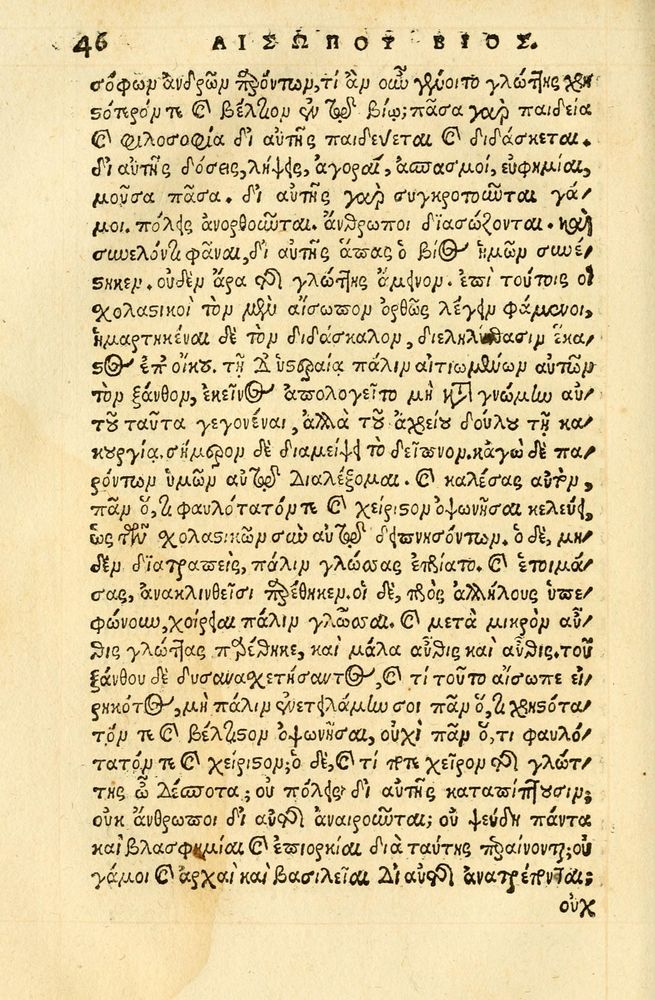 46 ΑΙΣΩΠΟΥ ΒΙΟΣ.
σόφων ἀνδρῶν παρόντων, τί ἂν οὖν γένοιτο γλώττης χρη
στότερόν τε καὶ βέλτιον ἐν τῷ βίῳ; πᾶσα γὰρ παιδεία
καὶ φιλοσοφία δι αὐτῆς παιδεύεται καὶ διδάσκεται.
δι αὐτῆς δόσεις, λήψεις, ἀγοραί, ἀσπασμοί, εὐφημίαι,
μοῦσα πᾶσα. δι αὐτῆς γὰρ συγκροτοῦνται γά/
μοι. πόλεις ἀνορθοῦνται. ἄνθρωποι διασώζονται. καὶ
συνελόντι φάναι, δι αὐτῆς ἅπας ὁ βίος ἡμῶν συνέ/
στηκεν. οὐδὲν ἄρα τῆς γλώττης ἄμεινον. ἐπὶ τούτοις οἱ
χολαστικοὶ τὸν μὲν αἴσωπον ὀρθῶς λέγειν φάμενοι,
ἡμαρτηκέναι δὲ τὸν διδάσκαλον, διεληλύθασιν ἕκα/
στος ἐπ οἴκου. τῇ δ ὑστεραίᾳ πάλιν αἰτιωμένων αὐτῶν
τὸν ξάνθον, ἐκεῖνος ἀπολογεῖτο μὴ κατὰ γνώμην αὐ/
τοῦ ταῦτα γεγονέναι, ἀλλὰ τοῦ ἀχρείου δούλου τῇ κα/
κουργίᾳ. σήμερον δὲ διαμείψει τὸ δεῖπνον. κἀγὼ δὲ πα/
ρόντων ὑμῶν αὐτῷ διαλέξομαι. καὶ καλέσας αὐτὸν,
πᾶν ὅ,τι φαυλότατόν τε καὶ χείριστον ὀψωνῆσαι κελεύει,
ὡς τῶν χολαστικῶν σὺν αὐτῷ δειπνησόντων. ὁ δὲ, μη/
δὲν διατραπεὶς, πάλιν γλώσσας ἐπρίατο. καὶ ἑτοιμά/
σας, ἀνακλινθεῖσι παρέθηκεν. οἱ δὲ, πρὸς ἀλλήλους ὑπε/
φώνουν, χοίρειαι πάλιν γλῶσσαι. καὶ μετὰ μικρὸν αὖ/
θις γλώττας παρέθηκε, καὶ μάλα αὖθις καὶ αὖθις. τοῦ
ξάνθου δὲ δυσαναχετήσαντος, καὶ τί τοῦτο αἴσωπε εἰ/
ρηκότος, μὴ πάλιν ἐνετειλάμην σοι πᾶν ὅ,τι χρηστότα/
τόν τε καὶ βέλτιστον ὀψωνῆσαι, οὐχὶ πᾶν ὅ,τι φαυλό/
τατόν τε καὶ χείριστον; ὁ δὲ, καὶ τί ποτε χεῖρον τῆς γλώτ/
της ὦ δέσποτα; οὐ πόλεις δι αὐτῆς καταπίπτουσιν;
οὐκ ἄνθρωποι δι αὐτῆς ἀναιροῦνται; οὐ ψεύδη πάντα
καὶ βλασφημίαι καὶ ἐπιορκίαι διὰ ταύτης περαίνονται; οὐ
γάμοι καὶ ἀρχαὶ καὶ βασιλεῖαι δι αὐτῆς ἀνατρέπονται;
οὐχ